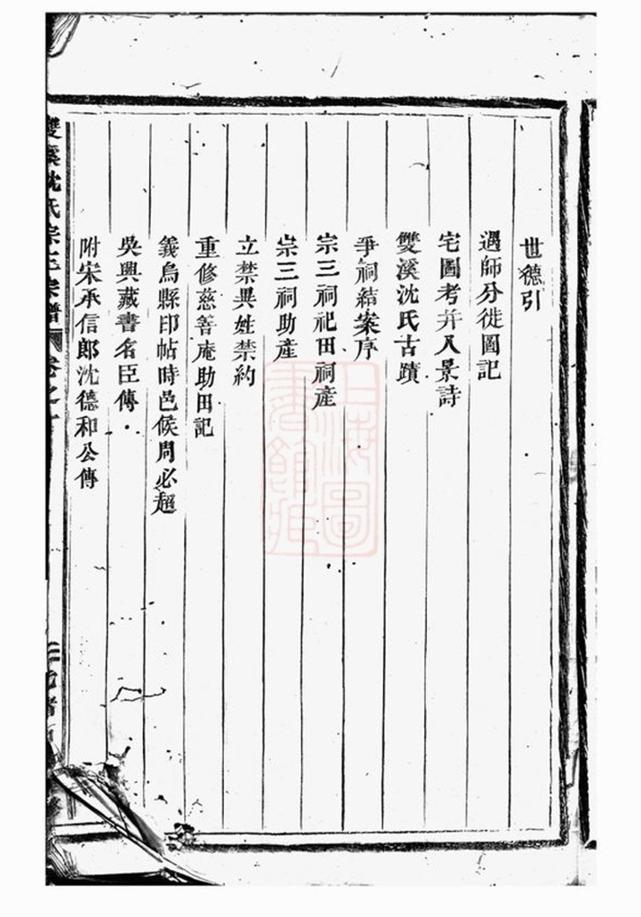 世德引
遇師分徙圖記
宅圖考并入景詩
雙溪沈氏古蹟
爭祠結案序
宗三祠祀田祠產
宗三祠助產
立禁異姓禁約
重修慈善庵助田記
義烏縣印帖時邑侯周必超
吳興藏書名臣傳
附宋承信郎沈德和公傳
雙溪沈氏宗
宗譜
卷之
上海圖書館藏